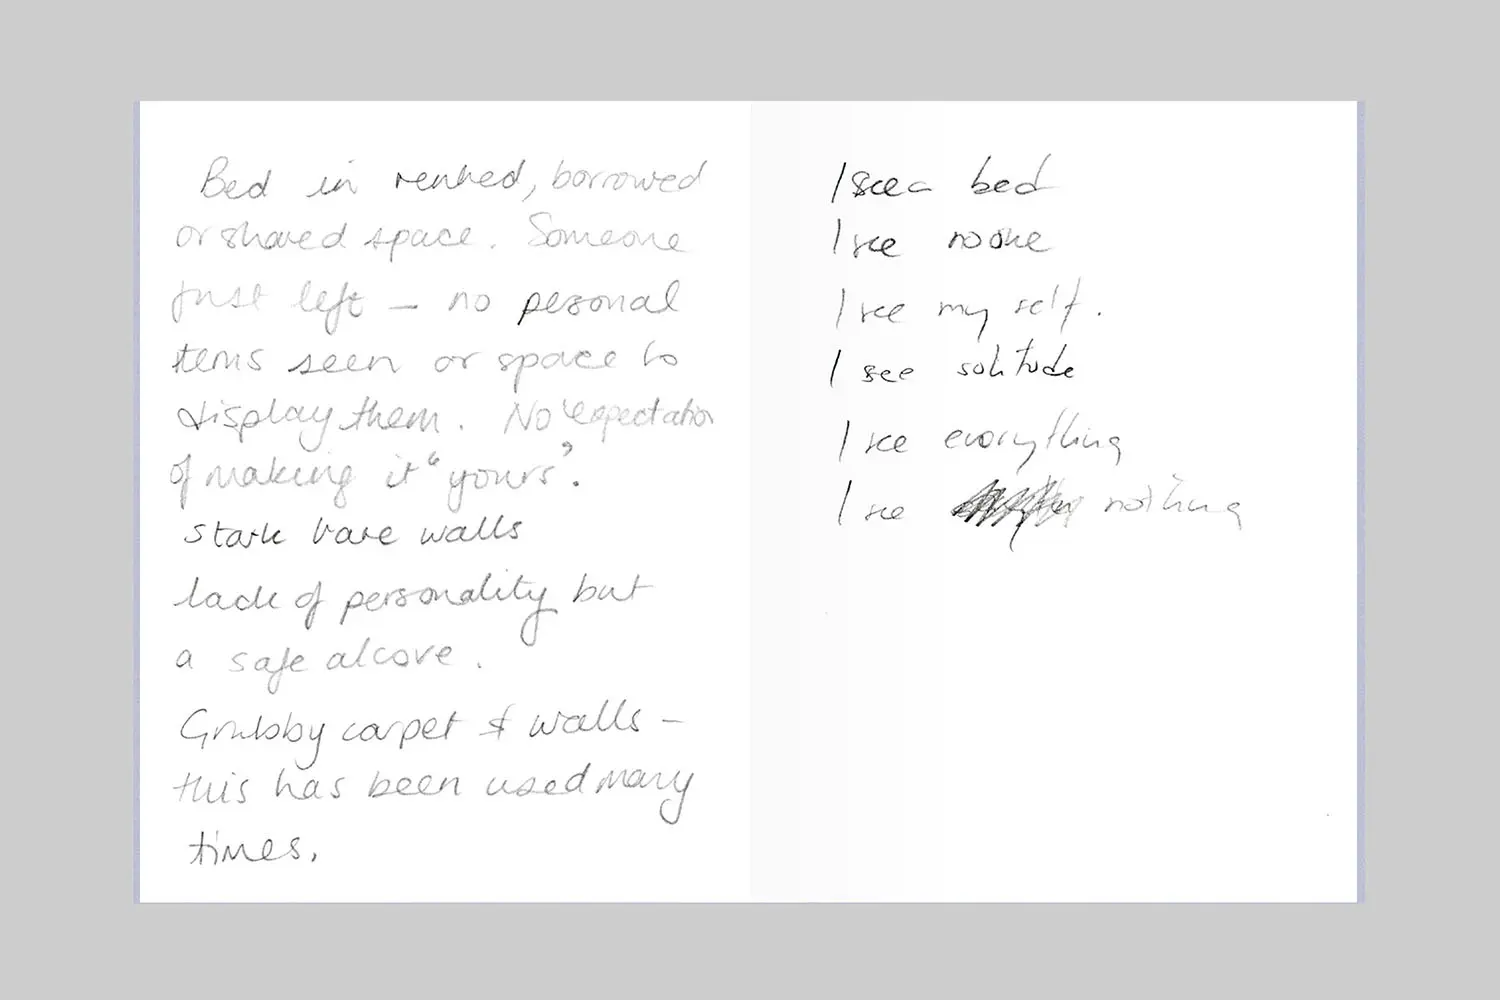 Bed in rented, borrowed
or shared space. Someone
just left – no pesonal
items seen or space to
display them. No expectation
of making it "yours".
stark bare walls
lack of personality but
a safe alcove.
Grubby carpet & walls –
this has been used many
times.
I see a bed
I see no one
I see my self.
I see solitude
I see everything
I see nothing